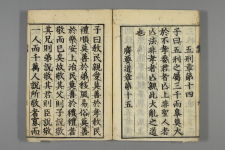 五刑章第十四
子曰五刑之屬三千而辠莫大
於不孝要君者亡上非聖人者
亡法非孝者亡親此大亂之道
也
廣要道章第十五
子曰教民親愛莫善於孝教民
禮順莫善於弟移風易俗莫善
於樂安上治民莫善於禮禮者
敬而已矣故敬其父則子說敬
其兄則弟說敬其君則臣說敬
一人而千萬人說所敬者寡而